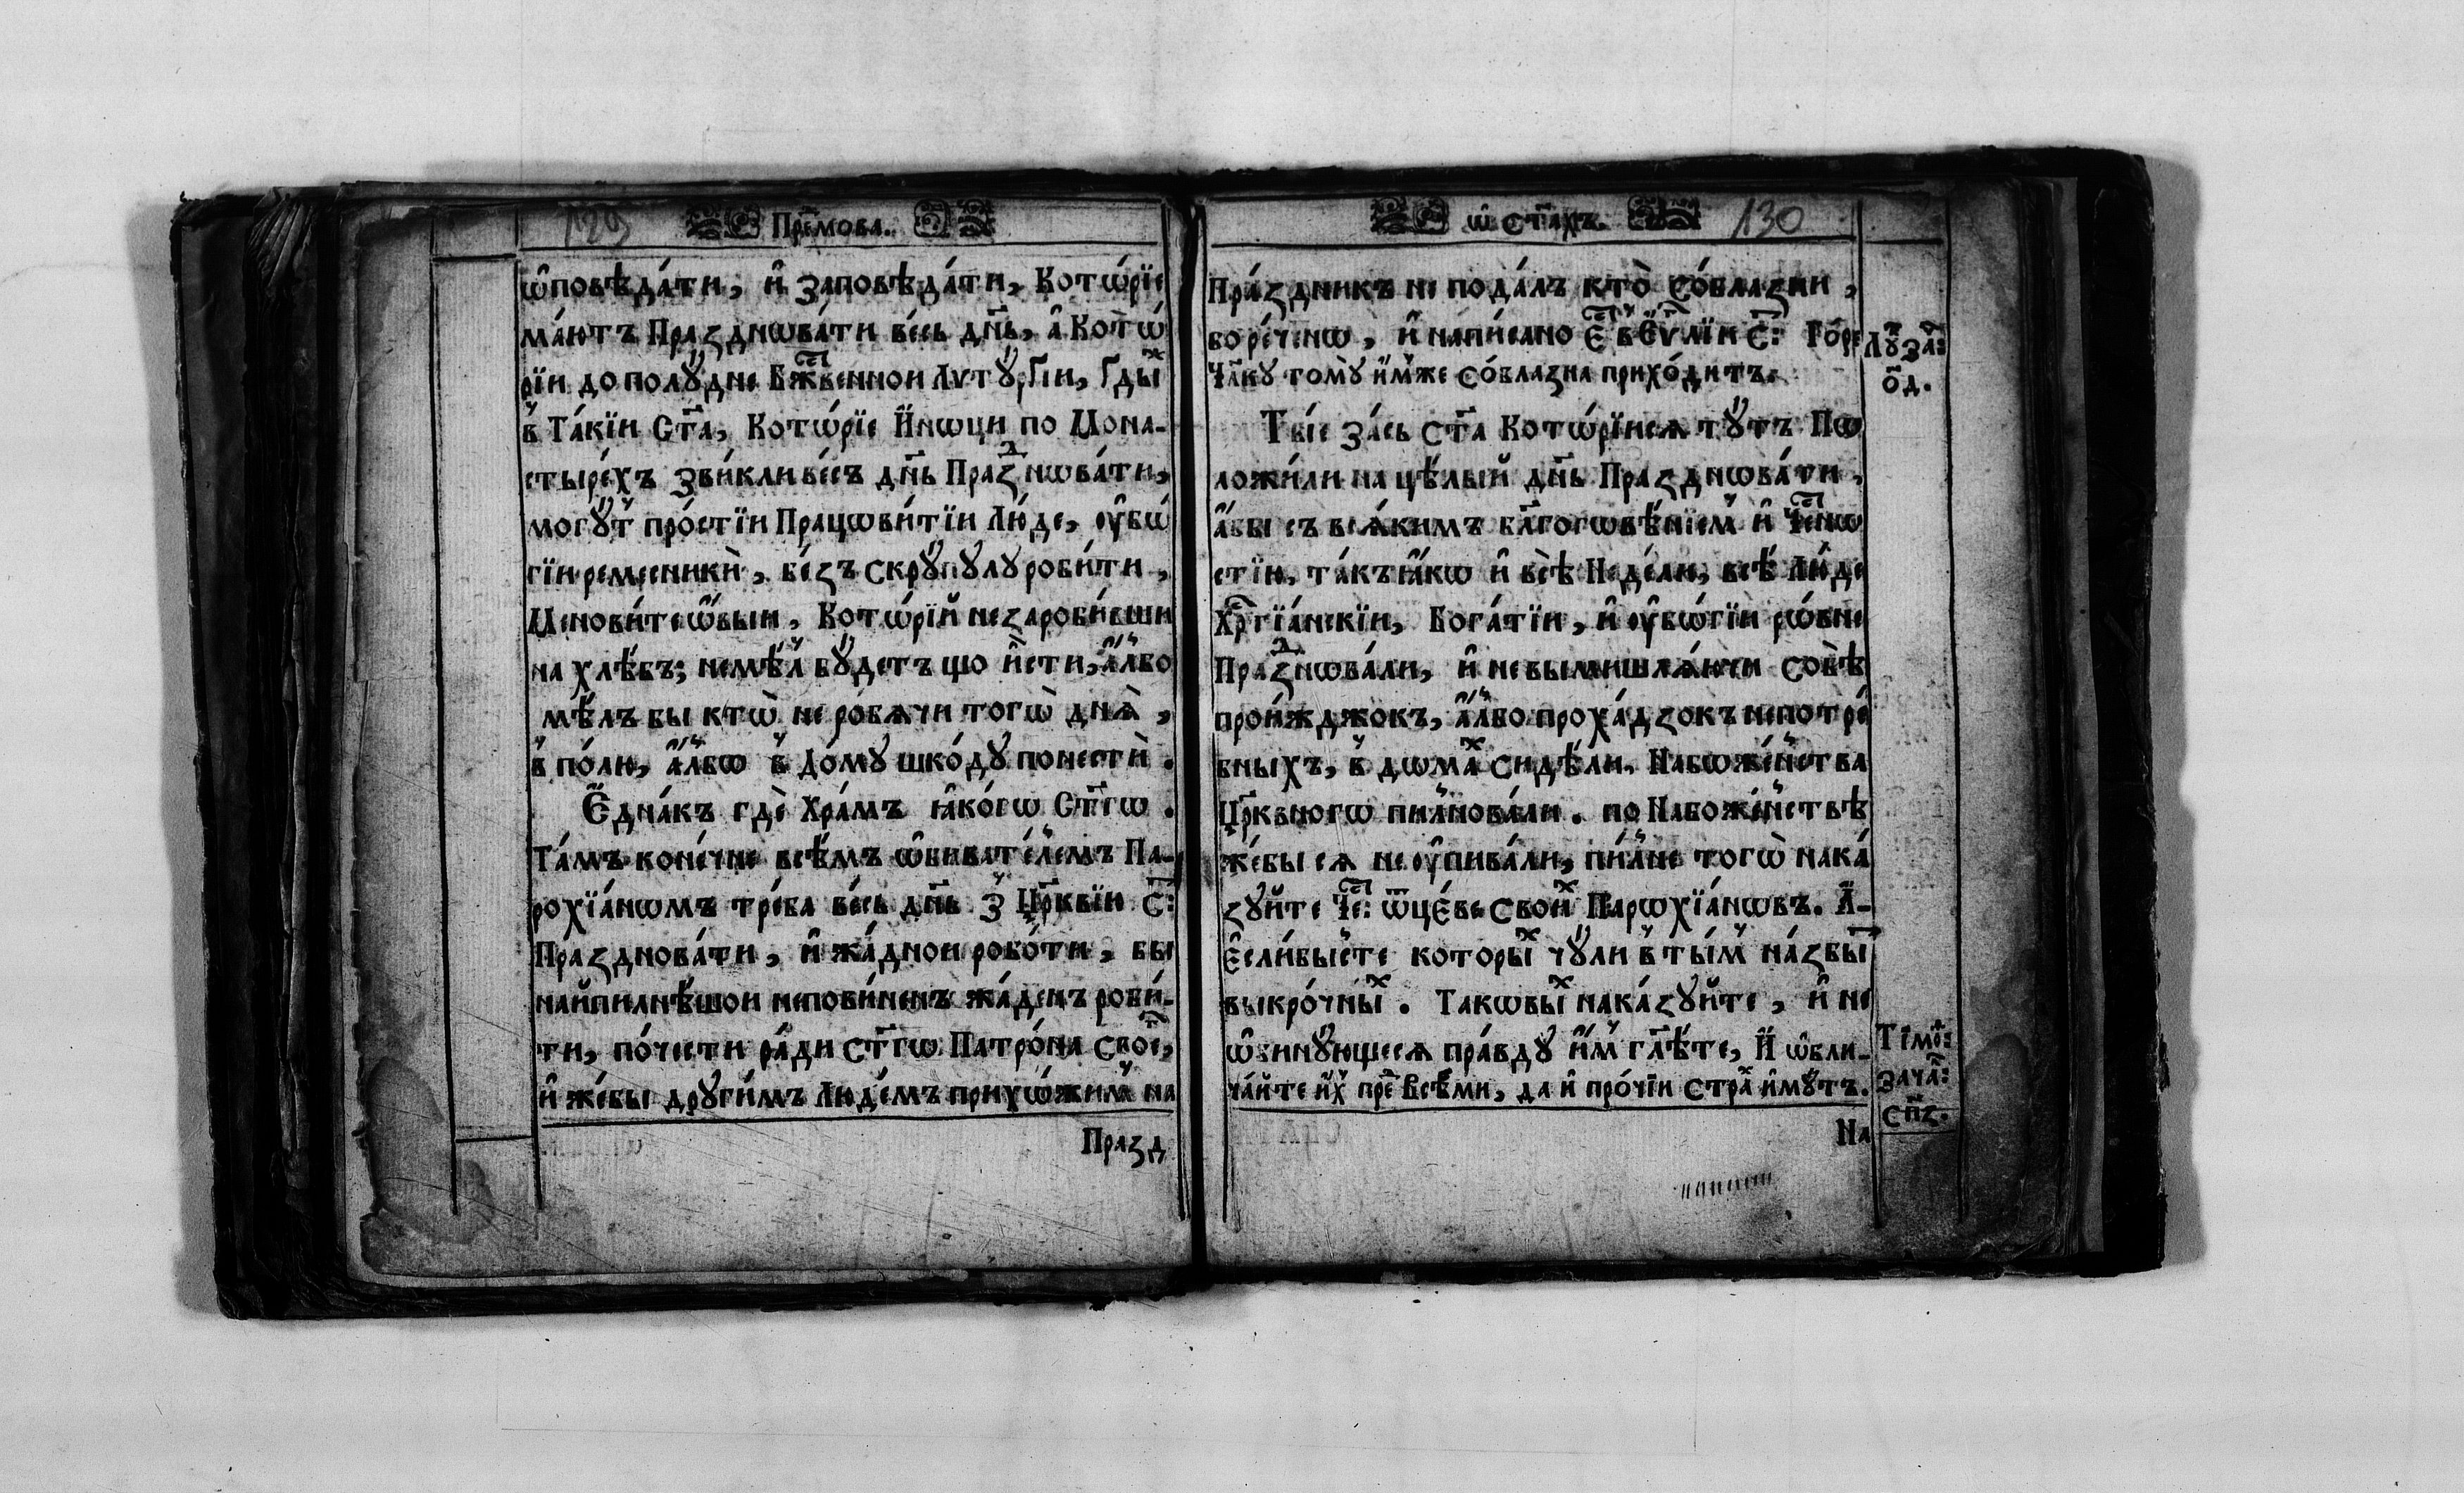 129
Пре҃мова.
ѡ҆повѣда́ти, и҆ заповѣда́ти, Котѡ́рїе
ма́ютъ Празднѡва́ти ве́сь дн҃ь, а҆ Котѡ́
рїи до полꙋ́дне Бж҃твеннои Лѵтꙋ́рґїи, Ґдыⷯ
в̾ Та́кїи Ст҃а, Котѡ́рїе И҆́нѡци по Мона-
стыре́хъ зви́кли ве́съ дн҃ь Празⷣнѡва́ти,
могꙋ́т̾ про́стїи Працѡви́тїи Лю́де, ᲂу҆бѡ́
гїи ремесникѝ, бе́зъ скрꙋ́пꙋлꙋ роби́ти,
Менови́те ѡ҆́выи, Котѡ́рїй незароби́вши
на хлѣ́бъ; немѣ́л̾ бꙋ́детъ що и҆̀сти, а҆́л̾бо
мѣ́лъ бы ктѡ̀ не робѧчи тогѡ̀ днѧ̀,
в̾ по́лю, а҆́л̾бѡ в̾ до́мꙋ шко́дꙋ понестѝ.
Е҆дна́къ гдѐ Хра́мъ ꙗ҆ко́гѡ Ст҃гѡ.
Та́мъ коне́чне всѣ́мъ ѡ҆бивате́лемъ Па-
рохїа́нѡмъ тре́ба ве́сь дн҃ь з̾ Цр҃квїю С҃:
Праздновати, и҆ жа́днои робо́ти, бы
найпилнѣ́шои неповине́нъ жа́денъ роби́-
ти, по́чести ра́ди ст҃гѡ Патро́на своеⷢ҇,
и҆ же́бы дрꙋги́мъ Лю́демъ прихѡ́жим̾ на
Празд
ѡ҆ ст҃ахъ.
130
Пра́здникъ не пода́лъ кто̀ со́блазни,
во ре́ченѡ, и҆ напи́сано Е҆ст҃ в̾ Е҆ѵⷢ҇лїи С҃: Го́ре
Чл҃кꙋ томꙋ̀ и҆́мже со́блазна прихо́дитъ.
Лꙋ҃: за҃:
о҃д.
Тыіе за́сь ст҃а Котѡ́рїи се́ѧ тꙋ́тъ Пѡ
ложи́ли на цѣ́лый дн҃ь Празднѡва́ти,
а҆́бы съ всѧ́кимъ бл҃гоговѣ́нїем̾ и҆ Че҃нѡ
стїю, та́къ ꙗ҆́кѡ и҆ всѣ̀ Неде́ли, всѣ̀ Лю́де
Хрⷭ҇тїа́нскїи, Бога́тїи, и҆ ᲂу҆бѡ́гїи рѡ́вне
Празⷣнѡва́ли, и҆ не вымишлѧ́ючи собѣ̀
прои́жджокъ, а҆́л̾бо проха́дзокъ непотре́
бныхъ, в̾ дѡмаⷯ сидѣ́ли. Набѡже́н̾ства
Цр҃кѡвногѡ пил̾нова́ли. по Набоже́н̾ствѣ
же́бы сѧ не ᲂу҆пива́ли, пи́л̾не тогѡ̀ нака́
зꙋйте Че҃: ѿце́ве своиⷯ Парѡхїа́нѡвъ. А҆-
Е҆сли́бысте которыⷯ чꙋ́ли в̾ ты́м̾ на́збы҃т
выкро́чныⷯ. Таковыⷯ нака́зꙋйте, и҆ не
ѡ҆бинꙋ́ющесѧ пра́вдꙋ и҆́м̾ гл҃ѣ́те, И҆ ѡ҆бли-
ча́йте и҆́х̾ преⷣ всѣ́ми, да и҆ про́чїи страⷯ и҆́мꙋтъ.
Тїмоⷴ:
зача҃:
сп҃з.
На